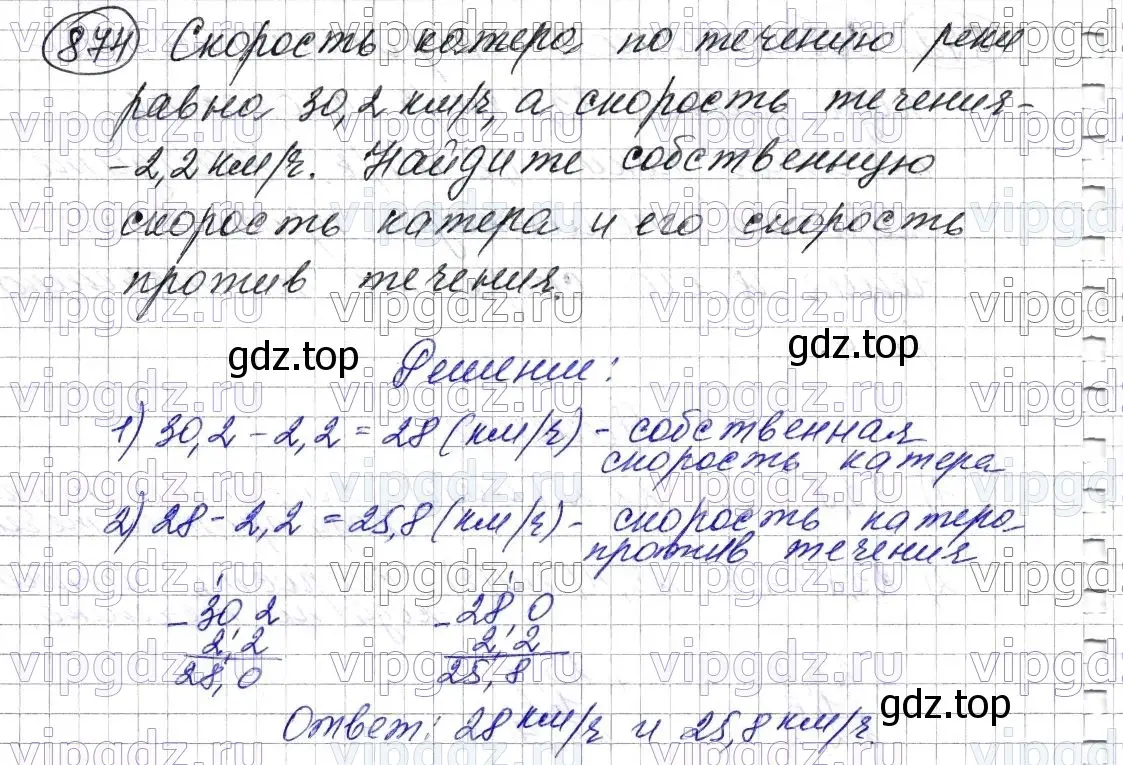 874 Скорость катера по течению реки
равна 30,2 км/ч, а скорость течения-
-2,2 км/ч. Найдите собственную
скорость катера и его скорость
против течения.
gdz.top gdz.top
Решение:
1) 30,2 - 2,2 = 28 (км/ч) - собственная
скорость катера
2) 28 - 2,2 = 25,8 (км/ч) - скорость катера
против течения
- 30,2 - 28,0
2,2 2,2
28,0 25,8
gdz.top
Ответ: 28 км/ч и 25,8 км/ч.